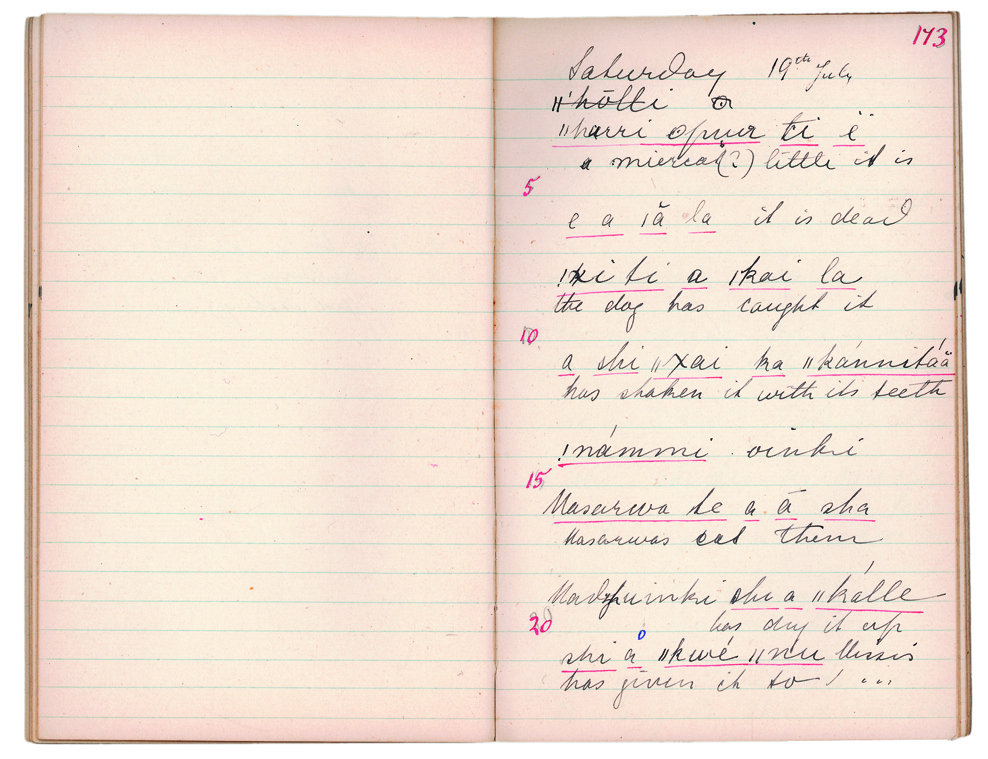 173
Saturday 19th July
ǁ'hōlli
ǁharri opuur ti ë
a miercat(?) little it is
5
e a ıă la it is dead
!xi ti a ıkai la
the dog has caught it
10
a shi ǁxai ka ǁkánnitáä
has shaken it with its teeth
!námmi oinki
15
Masarwa te a ā sha
Masarwas eat them
shi a ǁkálle
has dug it up
20
shi å ǁkwé ǁnu Missis
has given it to / ...